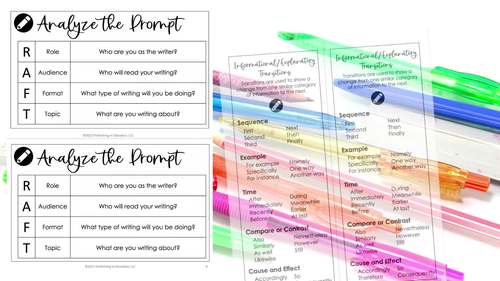 Analyze the Prompt
R Role Who are you as the writer?
A Audience Who will read your writing?
F Format What type of writing will you be doing?
T Topic What are you writing about?
Analyze the Prompt
R Role Who are you as the writer?
A Audience Who will read your writing?
F Format What type of writing will you be doing?
T Topic What are you writing about?
Informational/Explanatory
Transitions
Transitions are used to show a
change from one similar category
of information to the next
Sequence
First Next
Second Then
Third Finally
Example
For example Namely
Specifically One way
For instance Another way
Time
After During
Immediately Meanwhile
Recently Earlier
At last
Compare or Contrast
Also Nevertheless
Similarly However
As well Still
Likewise
Cause and Effect
Accordingly
Informational/Explanatory
Transitions
Transitions are used to show a
change from one similar category
of information to the next
Sequence
First Next
Second Then
Third Finally
Example
For example Namely
Specifically One way
For instance Another way
Time
After During
Immediately Meanwhile
Recently Earlier
Before At last
Compare or Contrast
Also Nevertheless
Similarly However
As well Still
Likewise
Cause and Effect
Accordingly
Therefore